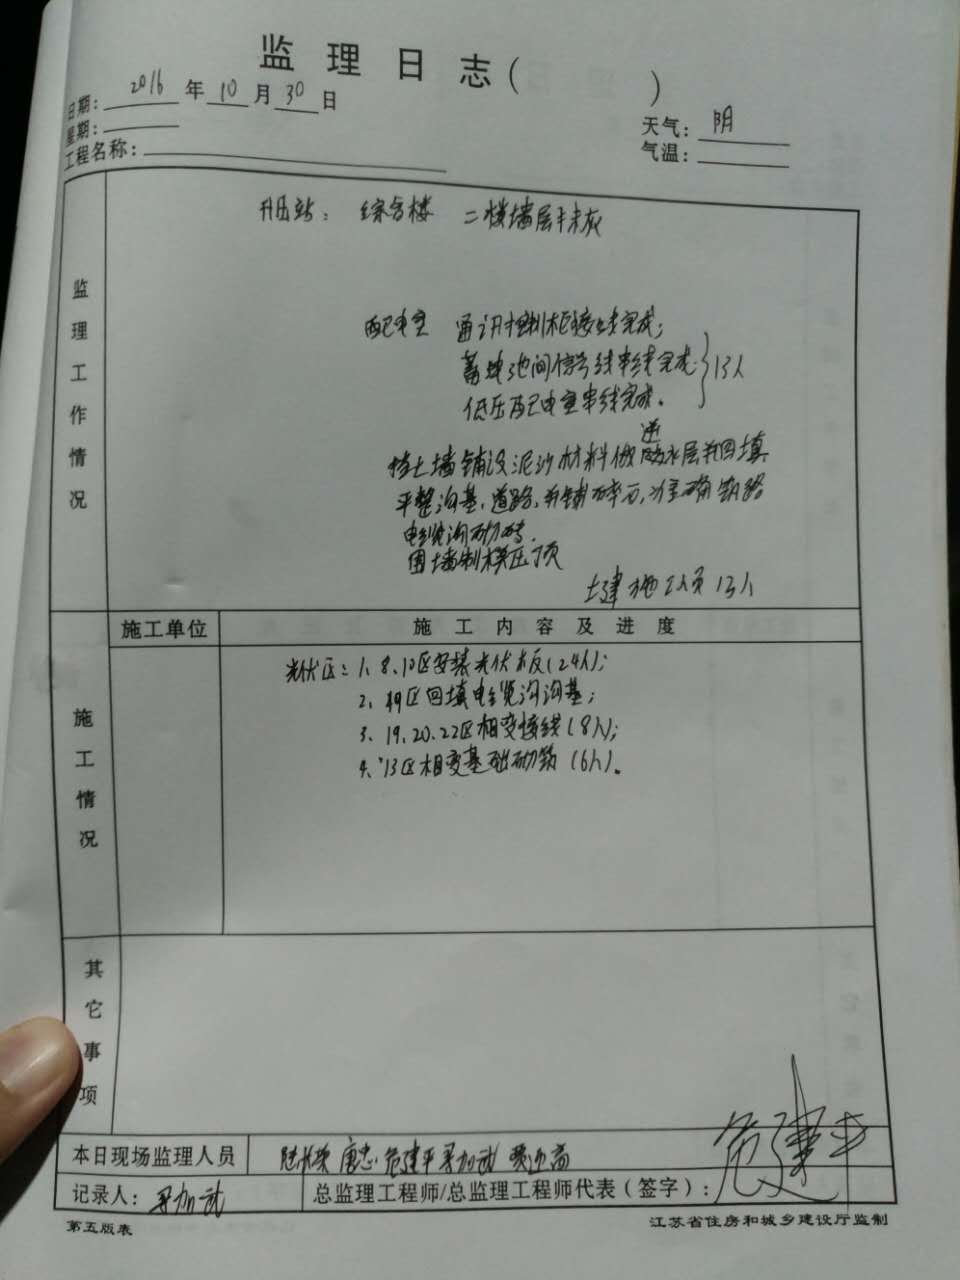 监理日志( )
日期: 2016 年 10 月 30 日
星期:
天气: 阴
气温:
工程名称:
监理工作情况
升压站: 综合楼 二楼墙层干未灰
配电室 通讯控制柜接线完成;
蓄电池间信号线串线完成
13人
低压配电室串线完成。
挡土墙铺设泥沙材料做 层并回填
平整沟基,道路,并铺碎石, 路
电缆沟砌砖.
围墙制模压顶
土建施工人员13人
施工情况
施工单位 施工内容及进度
光伏区: 1、8、10区安装光伏板(24人);
2、19区回填电缆沟沟基;
3、19、20、22区相变接线(8人);
4、13区相变基础砌筑(6人)。
其它事项
本日现场监理人员 唐志 危建平
记录人:
总监理工程师/总监理工程师代表(签字): 危建平
第五版表
江苏省住房和城乡建设厅监制